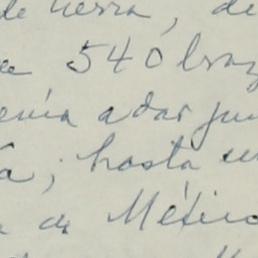 de tierra, de
de 540 braz
enía a dar jun
a, hasta un
a de Méxic